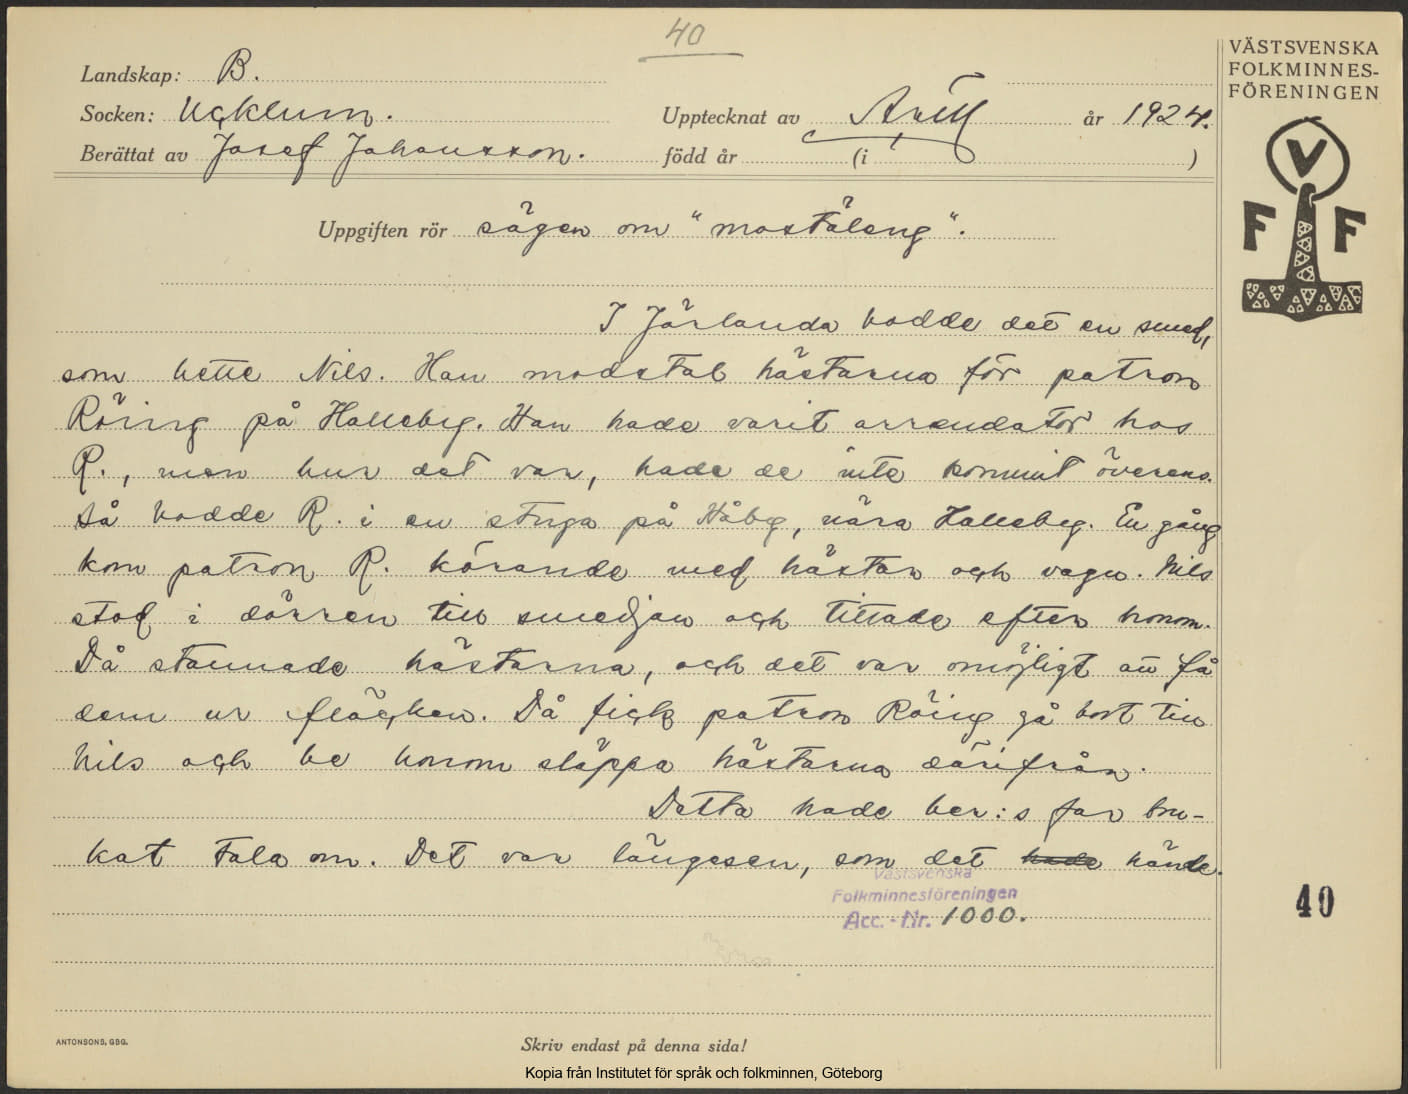 40
VÄSTSVENSKA
FOLKMINNES-
FÖRENINGEN
Landskap: B.
Socken: Ucklum. Upptecknat av år 1924.
Berättat av Josef Johansson. född år (i )
V
F F
Uppgiften rör sägen om "modstäleng".
I Jörlanda bodde det en smed,
som hette Nils. Han modstal hästarna för patron
Röing på Hallebg. Han hade varit arrendator hos
R., men hur det var, hade de inte kommit överens.
Så bodde R. i en stuga på Håbg, nära Hallebg. En gång
kom patron R. körande med hästar och vagn. Nils
stod i dörren till smedjan och tittade efter honom.
Då stannade hästarna, och det var omöjligt att få
dem ur fläcken. Då fick patron Röing gå bort till
Nils och be honom släppa hästarna därifrån.
Detta hade ber:s far bru-
kat tala om. Det var längesen, som det hade hände.
Västsvenska
Folkminnesföreningen
Acc.-Nr. 1000.
40
ANTONSONS, GBG.
Skriv endast på denna sida!
Kopia från Institutet för språk och folkminnen, Göteborg